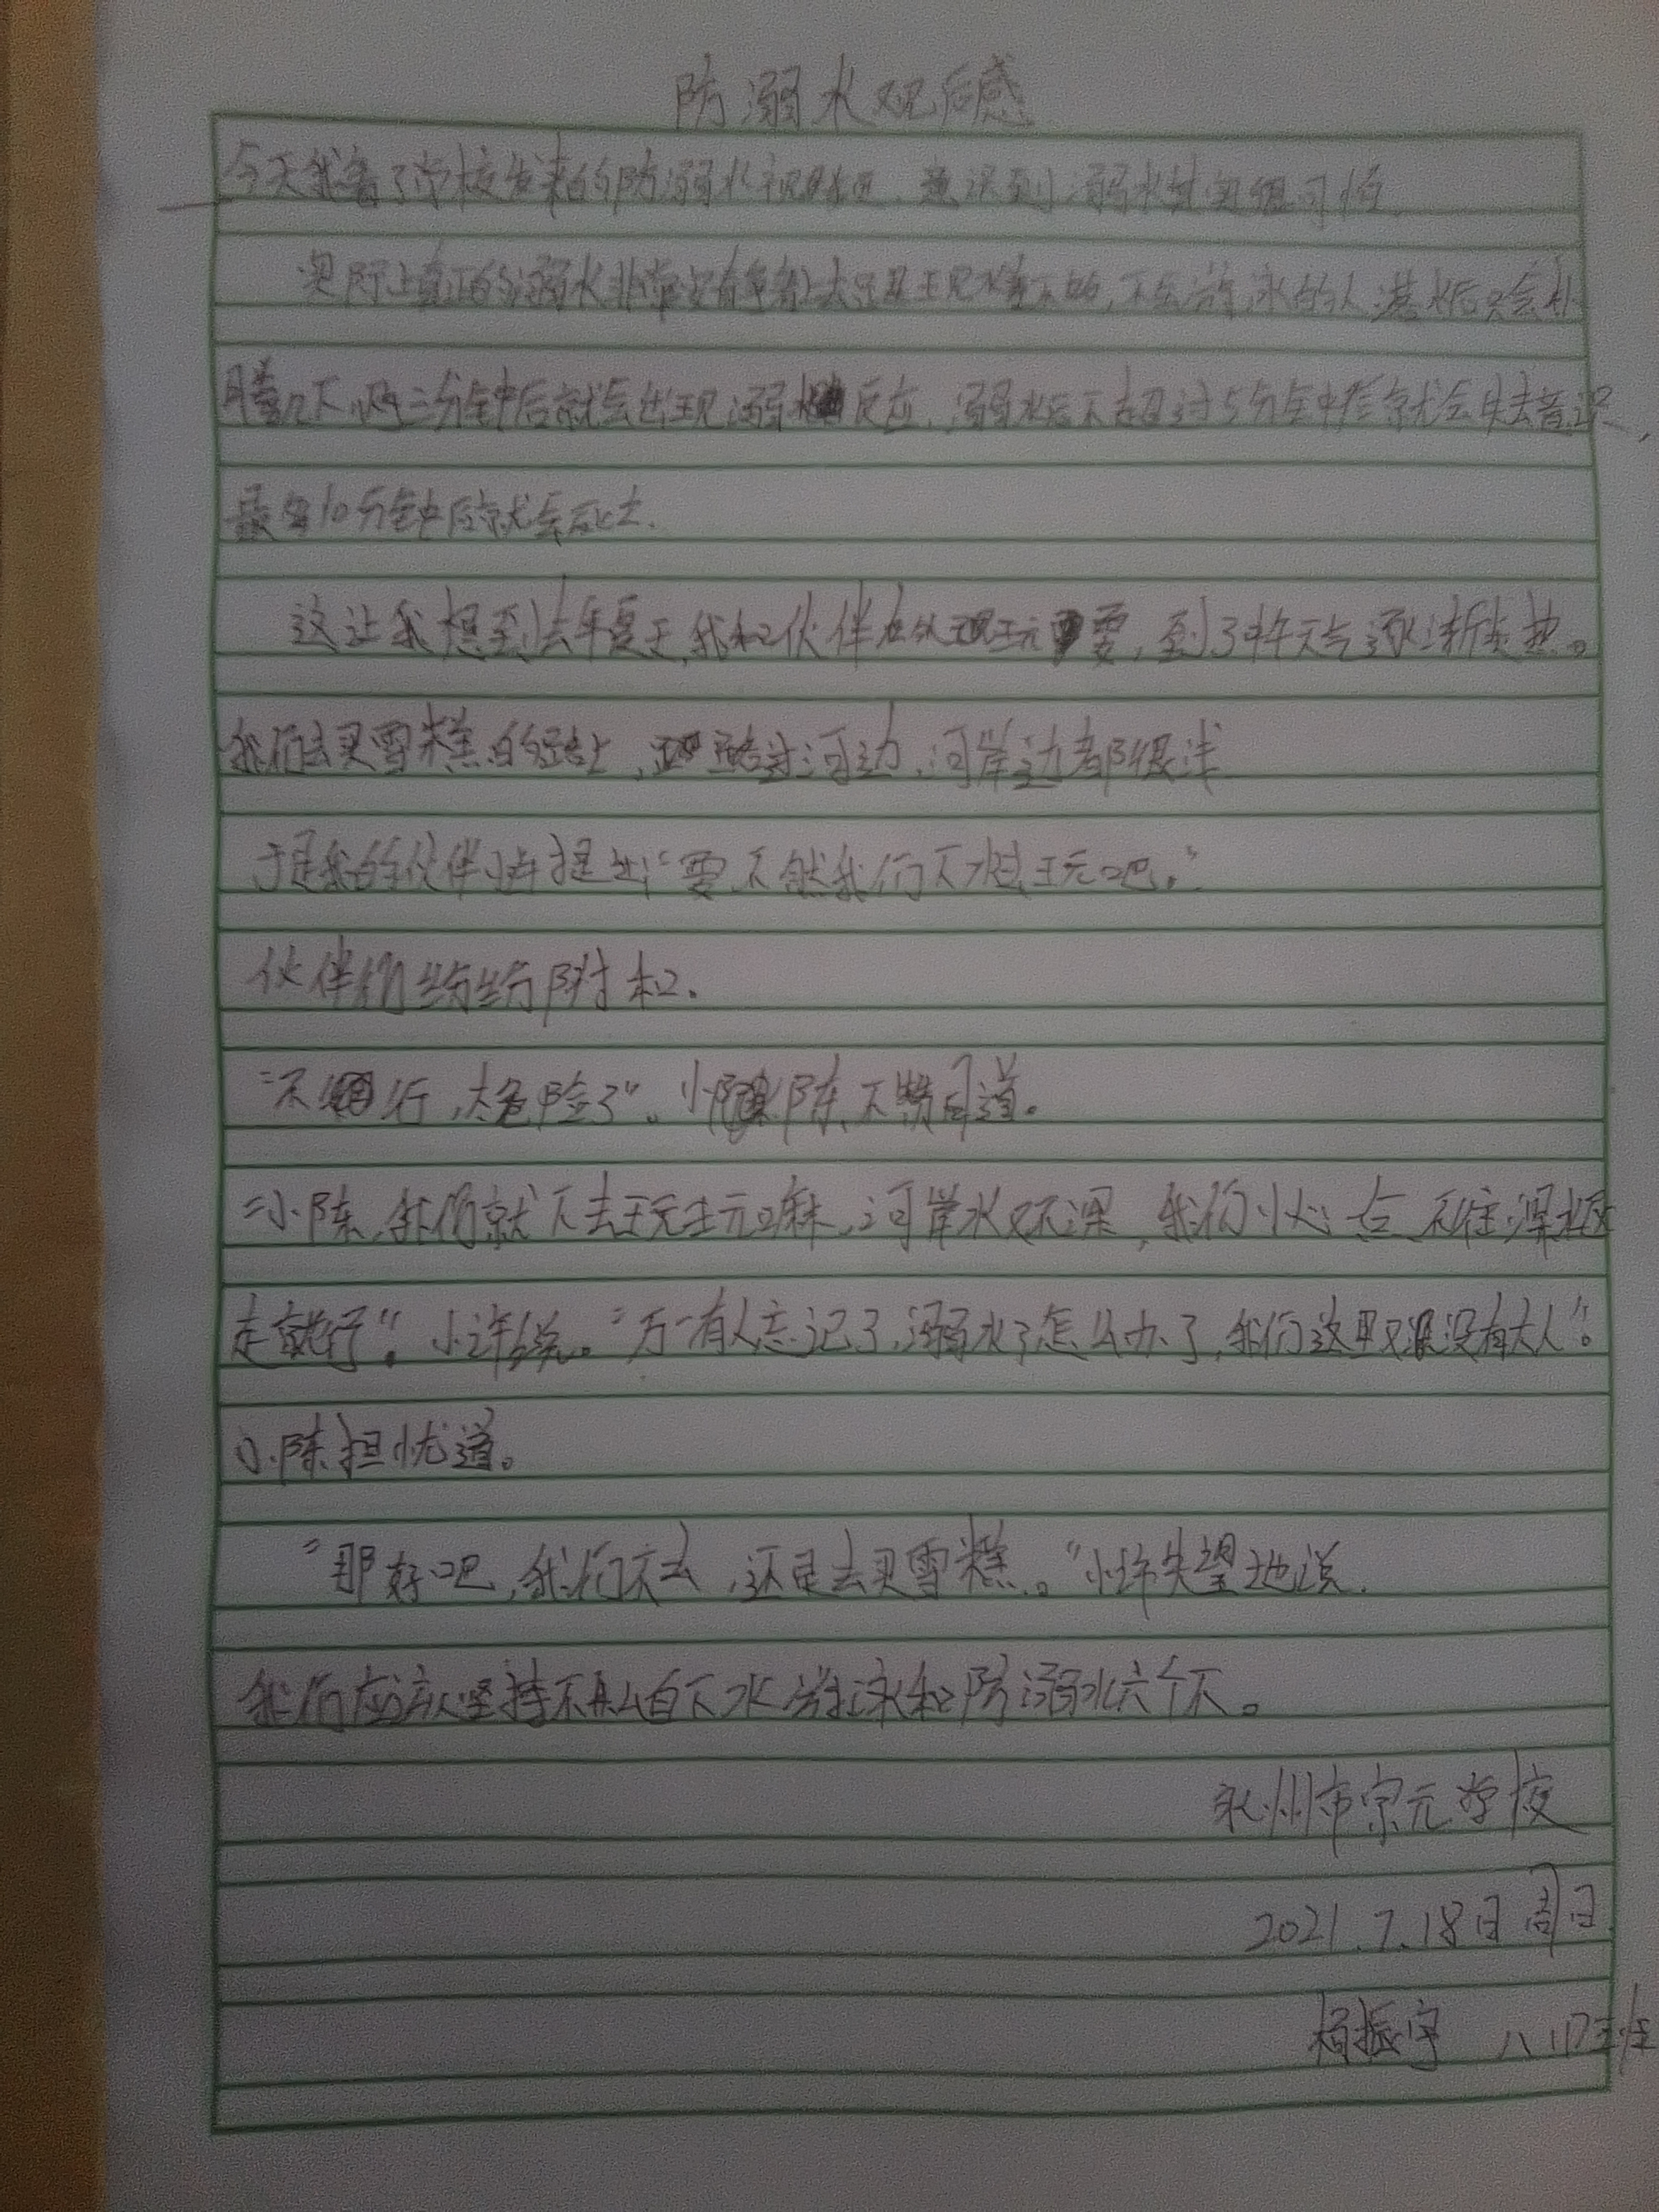 防溺水观后感
今天我看了学校发来的防溺水视频，意识到溺水其实很可怕.
实际上真正的溺水非常没有看上去，不会游泳的人落水后只会扑
腾几下,两三分钟后就会出现溺水反应,溺水后不超过5分钟后就会失去意识,
最多10分钟后就会死亡.
这让我想到去年夏天,我和伙伴在外玩耍,到了中午天气逐渐炎热。
我们去买雪糕的路上,路过河边,河岸边都很浅
于是我的伙伴小许提出“要不然我们下水去玩吧。”
伙伴们纷纷附和.
“不行,太危险了”。小陈不赞同道。
“小陈,我们就下去玩玩嘛,河岸水又不深,我们小心点不往深水区
走就行”。小许说。“万一有人忘记了,溺水了怎么办了,我们这里又没有大人”。
小陈担忧道。
“那好吧,我们不去,还是去买雪糕。”小许失望地说.
我们应该坚持不私自下水游泳和防溺水六个不。
永州市宗元学校
2021.7.18日周日
杨振宇